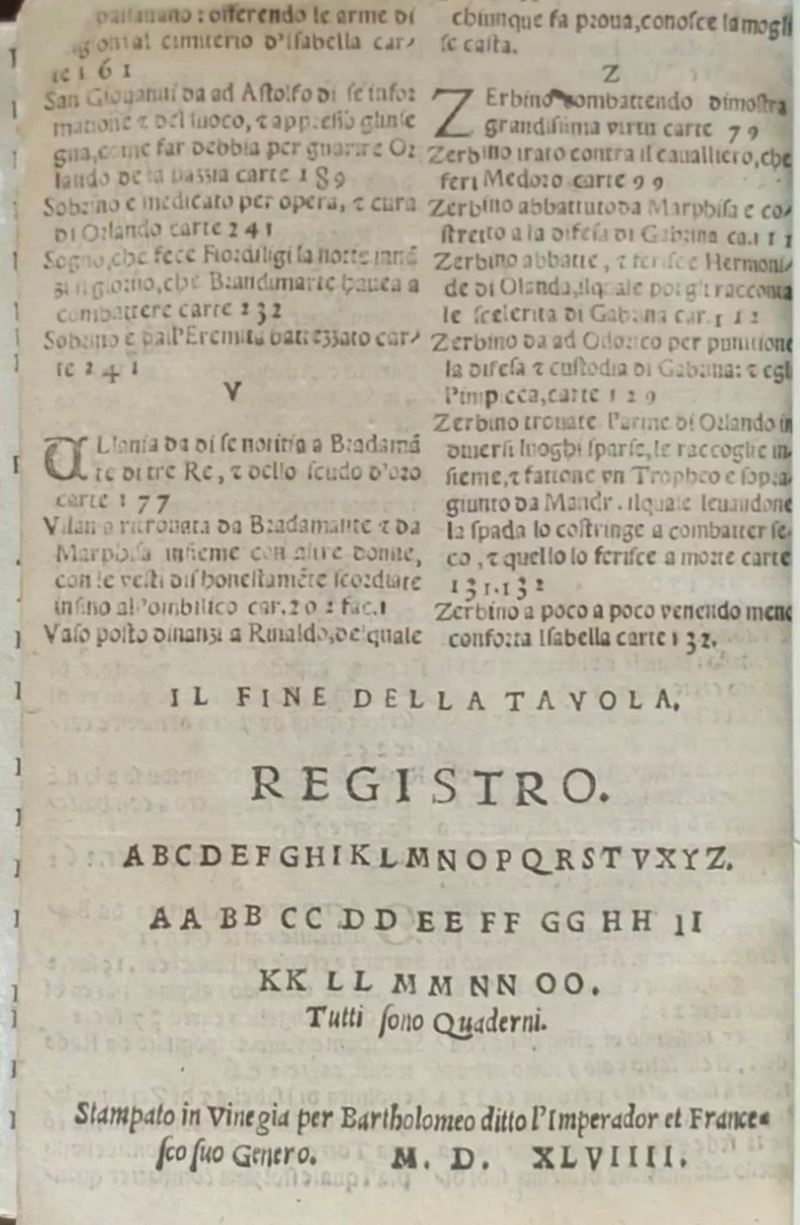 paesano: offerendo le arme di
al cimiterio d'Isabella car/
te 1 6 1
San Giouanni da ad Astolfo di se infor
matione τ del luoco, τ appresso gl'inse
gna, come far debbia per guarire Or
lando de la pazzia carte 1 8 9
Sobrino e medicato per opera, τ cura
di Orlando carte 2 4 1
Sogno, che fece Fiordiligi la notte inná
zi il giorno, che Brandimarte hauea a
combattere carte 2 3 2
Sobrino e dall'Eremita battezzato car/
te 2 4 1
V
VLlania da di se notitia a Bradamá
te di tre Re, τ dello scudo d'oro
carte 1 7 7
Vllania ritrouata da Bradamante τ da
Marphisa insieme con altre donne,
con le vesti dishonestaméte scordiate
insino al'ombilico car. 2 0 2 fac. 1
Vaso posto dinanzi a Rinaldo, del quale
chiunque fa proua, conosce la mogli
se casta.
Z
ZErbino combattendo dimostra
grandissima virtu carte 7 9
Zerbino irato contra il caualliero, che
feri Medoro carte 9 9
Zerbino abbattuto da Marphisa e co/
stretto a la difesa di Gabrina ca. 1 1 1
Zerbino abbatte, τ ferisce Hermoni/
de di Olanda, ilquale poi gli racconta
le scelerita di Gabrina car. 1 1 2
Zerbino da ad Odorico per punitione
la difesa τ custodia di Gabrina: τ egli
l'impicca, carte 1 2 9
Zerbino trouate l'arme di Orlando in
diuersi luoghi sparse, le raccoglie in-
sieme, τ fattone vn Tropheo e sopra
giunto da Mandr. ilquale leuandone
la spada lo costringe a combatter se-
co, τ quello lo ferisce a morte carte
1 3 1. 1 3 2
Zerbino a poco a poco venendo meno
conforta Isabella carte 1 3 2.
IL FINE DELLA TAVOLA.
REGISTRO.
ABCDEFGHIKLMNOPQRSTVXYZ.
AA BB CC DD EE FF GG HH II
KK LL MM NN OO.
Tutti sono Quaderni.
Stampato in Vinegia per Bartholomeo ditto l'Imperador et France-
sco suo Genero. M. D. XLVIIII.